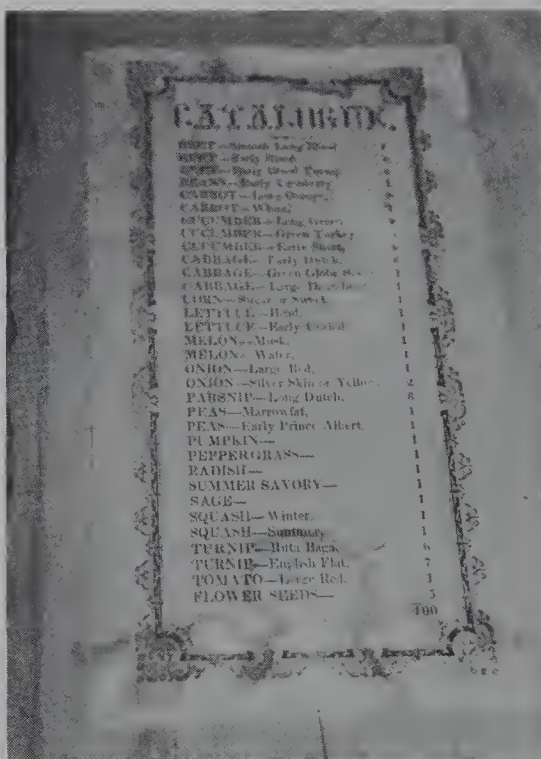 CATALOGUE.
BEET—Smooth Long Blood
BEET—Early Blood
BEET—Early Blood Turnip
BEANS—Early Cranberry 1
CARROT—Long Orange,
CARROT—White,
CUCUMBER—Long Green
CUCUMBER—Green Turkey
CUCUMBER—Early Short,
CABBAGE—Early Dutch,
CABBAGE—Green Globe 1
CABBAGE—Large 1
CORN—Sugar or Sweet, 1
LETTUCE—Head, 1
LETTUCE—Early Curled 1
MELON—Musk, 1
MELON—Water, 1
ONION—Large Red, 1
ONION—Silver Skin or Yellow, 2
PARSNIP—Long Dutch, 8
PEAS—Marrowfat, 1
PEAS—Early Prince Albert, 1
PUMPKIN— 1
PEPPERGRASS— 1
RADISH— 1
SUMMER SAVORY— 1
SAGE— 1
SQUASH—Winter, 1
SQUASH—Summer, 1
TURNIP—Ruta Baga, 6
TURNIP—English Flat, 7
TOMATO—Large Red, 1
FLOWER SEEDS— 5
100